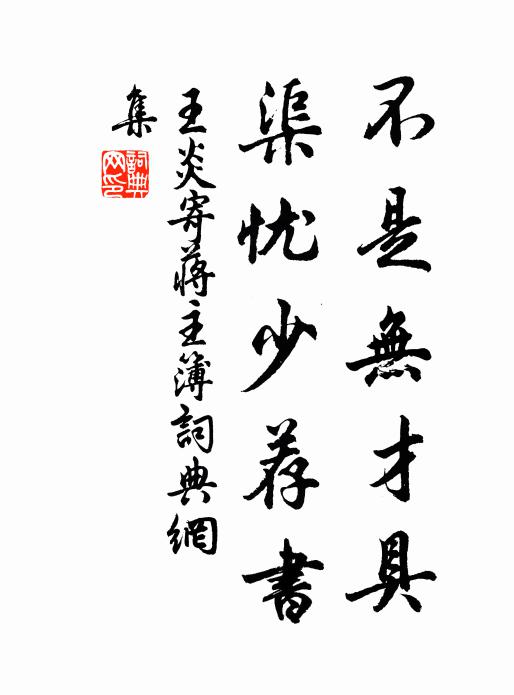 不是無才具
渠忧少荐書
王炎寄蔣主簿詞典網
集
詞典
网印